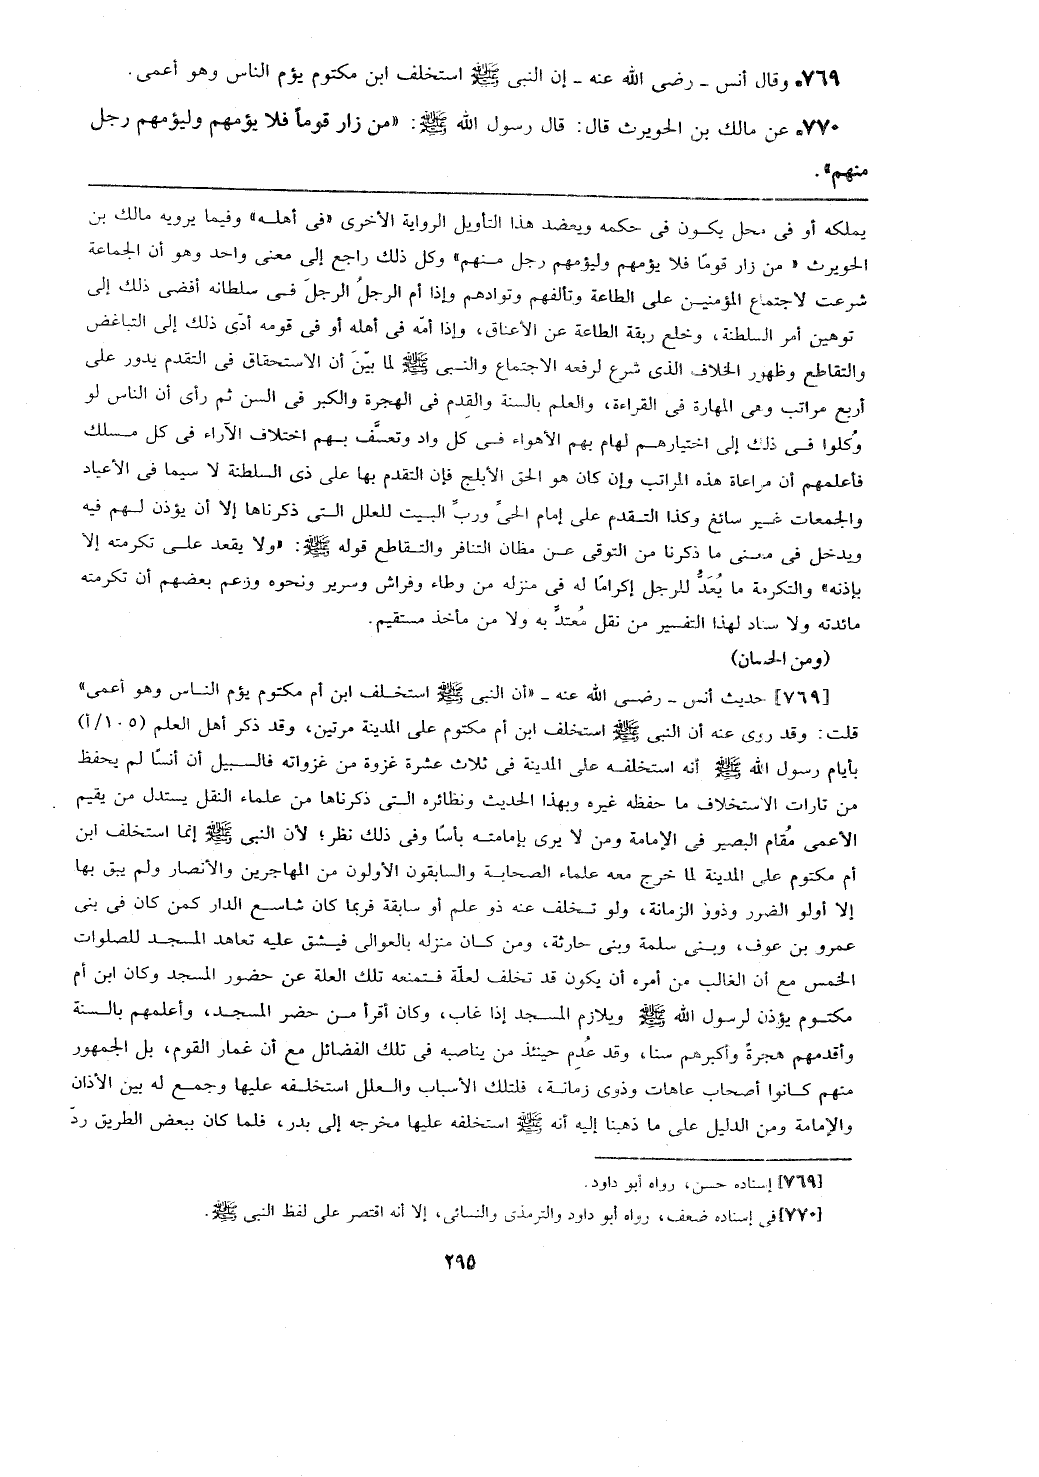 ٧٦٩* وقال أنس ـ رضى الله عنه ـ إن النبى ﷺ استخلف ابن مكتوم يؤم الناس وهو أعمى.
٧٧٠* عن مالك بن الحويرث قال: قال رسول الله ﷺ: «من زار قوماً فلا يؤمهم وليؤمهم رجل
منهم».
يملكه أو فى محل يكون فى حكمه ويعضد هذا التأويل الرواية الأخرى «فى أهله» وفيما يرويه مالك بن
الحويرث « من زار قومًا فلا يؤمهم وليؤمهم رجل منهم» وكل ذلك راجع إلى معنى واحد وهو أن الجماعة
شرعت لاجتماع المؤمنين على الطاعة وتألفهم وتوادهم وإذا أم الرجلُ الرجلَ فى سلطانه أفضى ذلك إلى
توهين أمر السلطنة، وخلع ربقة الطاعة عن الأعناق، وإذا أمّه فى أهله أو فى قومه أدّى ذلك إلى التباغض
والتقاطع وظهور الخلاف الذى شرع لرفعه الاجتماع والنبى ﷺ لما بيّنَ أن الاستحقاق فى التقدم يدور على
أربع مراتب وهى المهارة فى القراءة، والعلم بالسنة والقدم فى الهجرة والكبر فى السن ثم رأى أن الناس لو
وُكلوا فى ذلك إلى اختيارهم لهام بهم الأهواء فى كل واد وتعسَّف بهم اختلاف الآراء فى كل مسلك
فأعلمهم أن مراعاة هذه المراتب وإن كان هو الحق الأبلج فإن التقدم بها على ذى السلطنة لا سيما فى الأعياد
والجمعات غير سائغ وكذا التقدم على إمام الحىِّ وربِّ البيت للعلل التى ذكرناها إلا أن يؤذن لهم فيه
ويدخل فى معنى ما ذكرنا من التوقى عن مظان التنافر والتقاطع قوله ﷺ: «ولا يقعد على تكرمته إلا
بإذنه» والتكرمة ما يُعَدُّ للرجل إكرامًا له فى منزله من وطاء وفراش وسرير ونحوه وزعم بعضهم أن تكرمته
مائدته ولا سناد لهذا التفسير من نقل مُعتدٍّ به ولا من مأخذ مستقيم.
(ومن الحسان)
[٧٦٩] حديث أنس ـ رضى الله عنه ـ «أن النبى ﷺ استخلف ابن أم مكتوم يؤم الناس وهو أعمى»
قلت: وقد روى عنه أن النبى ﷺ استخلف ابن أم مكتوم على المدينة مرتين، وقد ذكر أهل العلم (١٠٥/أ)
بأيام رسول الله ﷺ أنه استخلفه على المدينة فى ثلاث عشرة غزوة من غزواته فالسبيل أن أنسًا لم يحفظ
من تارات الاستخلاف ما حفظه غيره وبهذا الحديث ونظائره التى ذكرناها من علماء النقل يستدل من يقيم
الأعمى مُقام البصير فى الإمامة ومن لا يرى بإمامته بأسًا وفى ذلك نظر؛ لأن النبى ﷺ إنما استخلف ابن
أم مكتوم على المدينة لما خرج معه علماء الصحابة والسابقون الأولون من المهاجرين والأنصار ولم يبق بها
إلا أولو الضرر وذوو الزمانة، ولو تخلف عنه ذو علم أو سابقة فربما كان شاسع الدار كمن كان فى بنى
عمرو بن عوف، وبنى سلمة وبنى حارثة، ومن كان منزله بالعوالى فيشق عليه تعاهد المسجد للصلوات
الخمس مع أن الغالب من أمره أن يكون قد تخلف لعلّة فتمنعه تلك العلة عن حضور المسجد وكان ابن أم
مكتوم يؤذن لرسول الله ﷺ ويلازم المسجد إذا غاب، وكان أقرأ من حضر المسجد، وأعلمهم بالسنة
وأقدمهم هجرةً وأكبرهم سنا، وقد عُدِم حينئذ من يناصبه فى تلك الفضائل مع أن غمار القوم، بل الجمهور
منهم كانوا أصحاب عاهات وذوى زمانة، فلتلك الأسباب والعلل استخلفه عليها وجمع له بين الأذان
والإمامة ومن الدليل على ما ذهبنا إليه أنه ﷺ استخلفه عليها مخرجه إلى بدر، فلما كان ببعض الطريق ردّ
[٧٦٩] إسناده حسن، رواه أبو داود.
[٧٧٠] فى إسناده ضعف، رواه أبو داود والترمذى والنسائى، إلا أنه اقتصر على لفظ النبى ﷺ.
٢٩٥